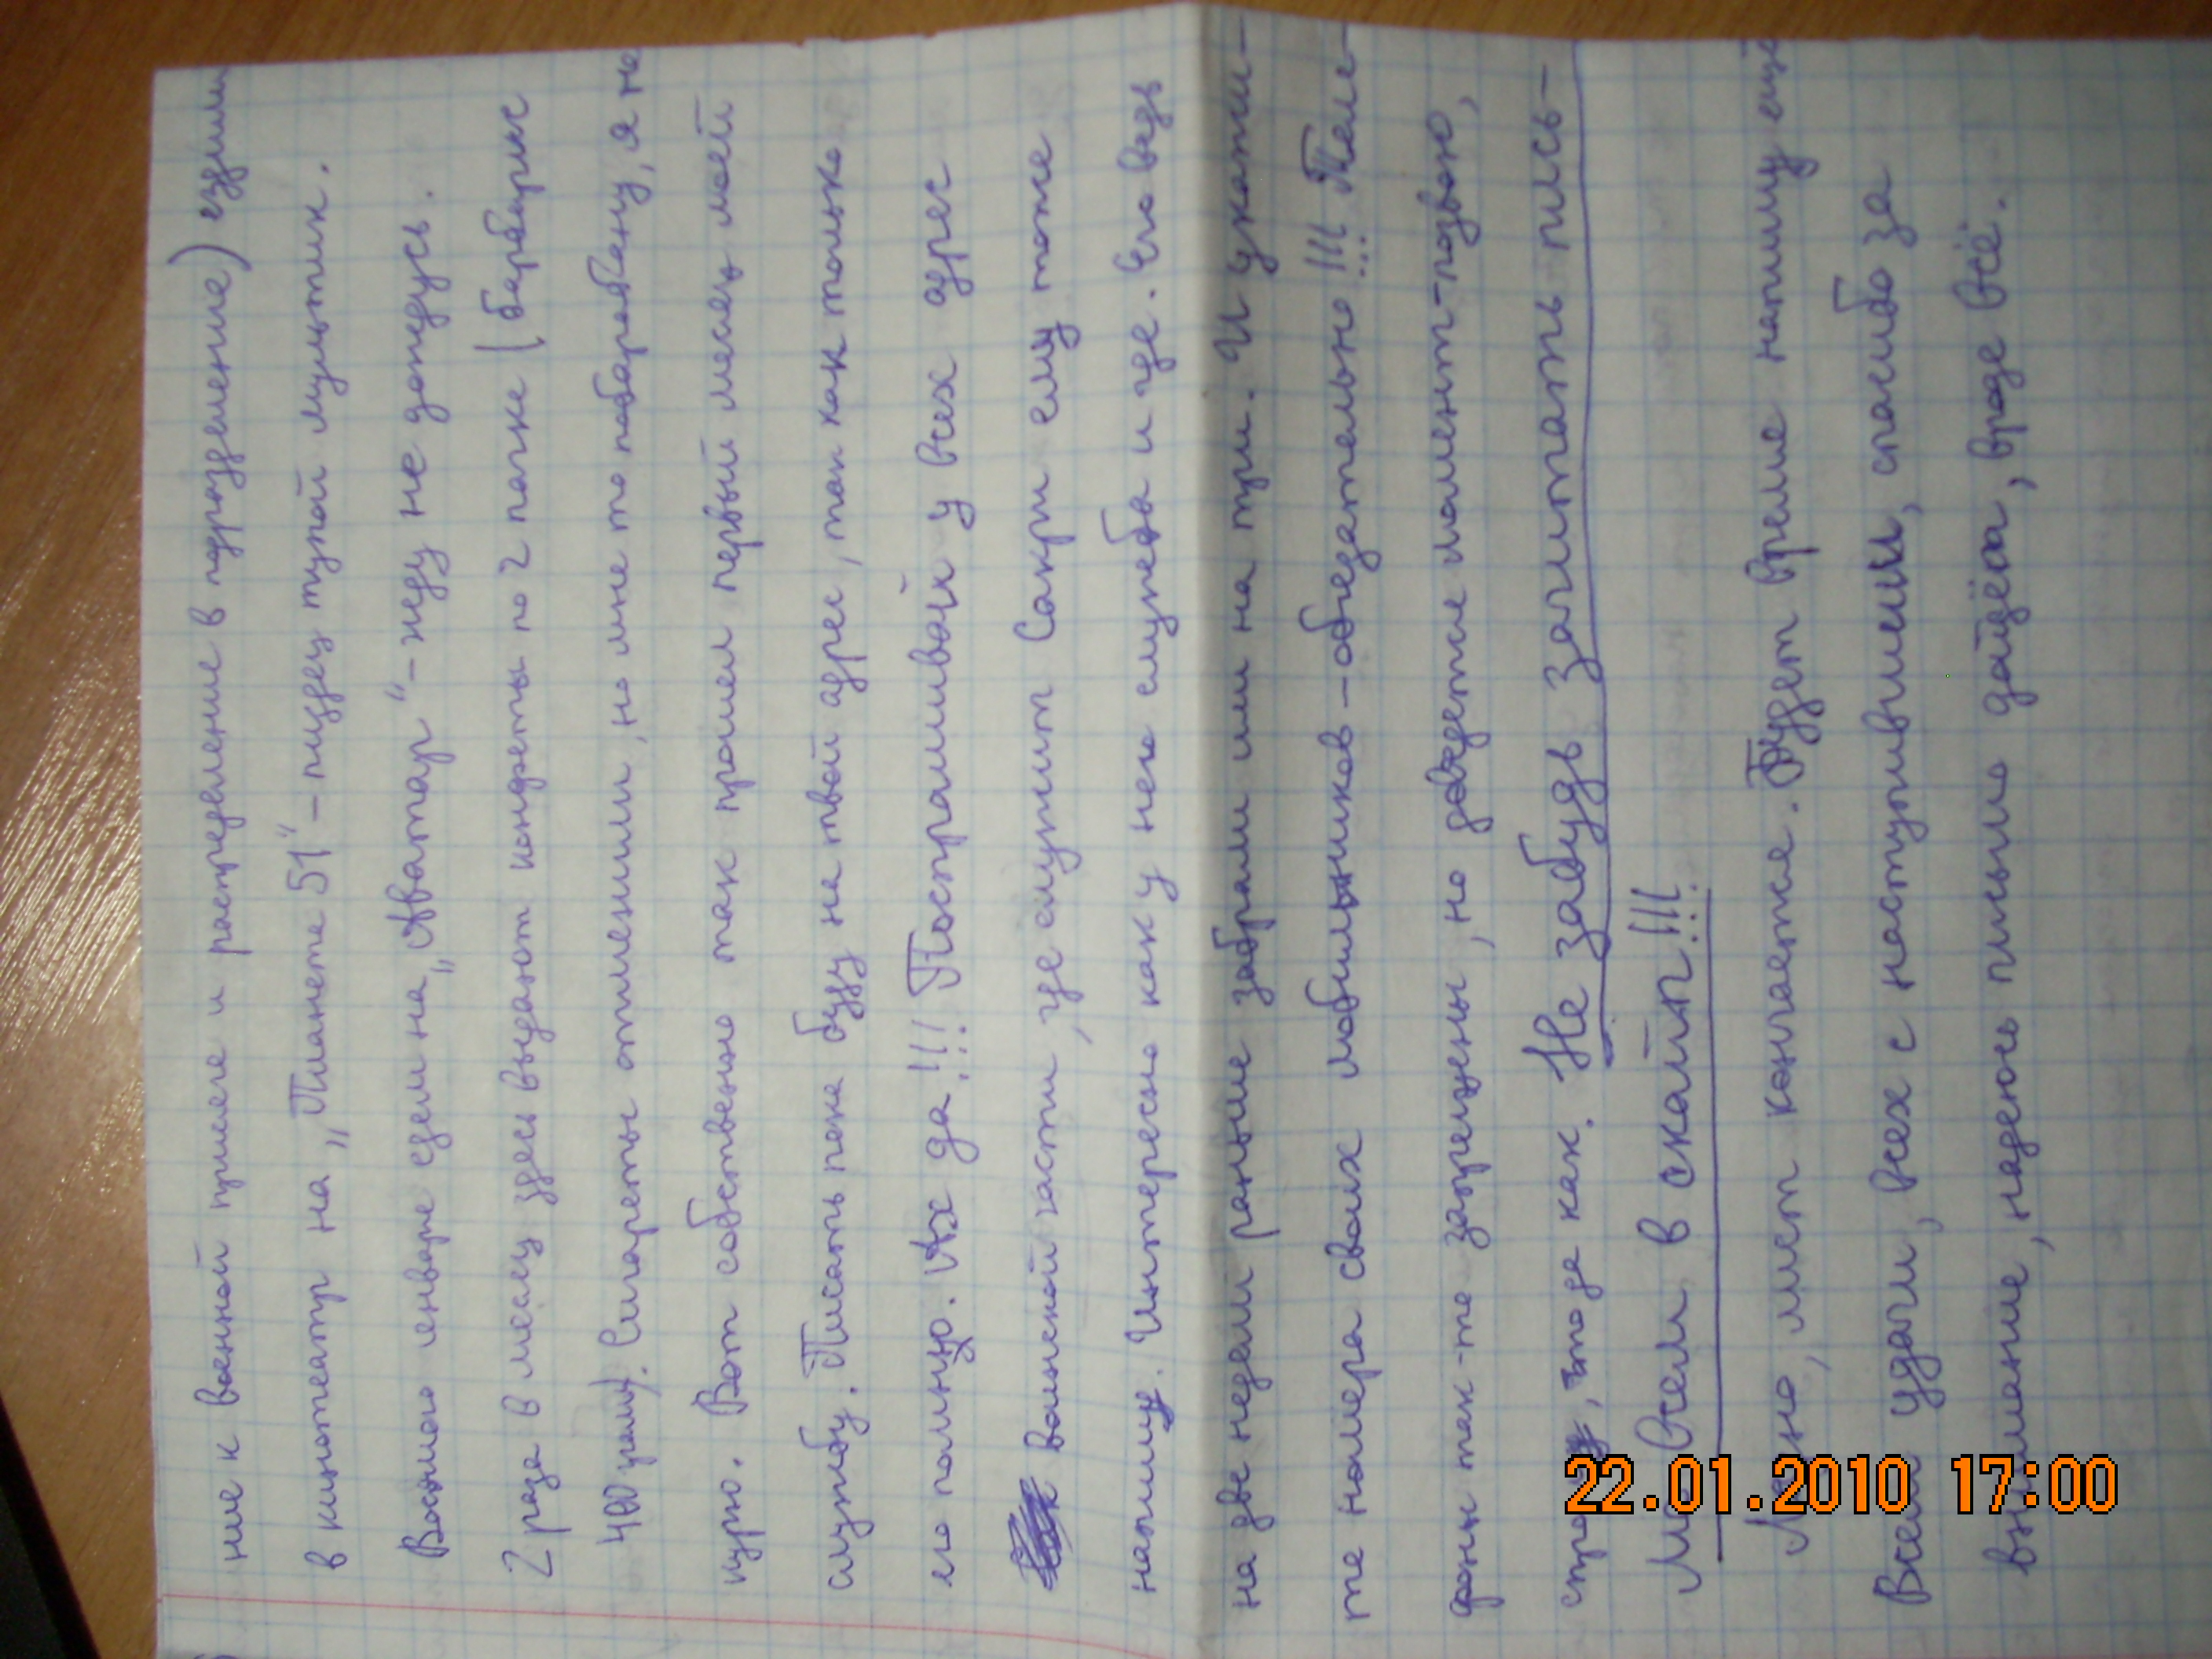 ние к военной присяге и распределение в подразделение) ездили
в кинотеатр на „Планете 51" – пиздец тупой мультик.
Восьмого январе едем на „Аватар" – жду не дождусь.
2 раза в месяц здесь выдают конфеты по 2 пачке (барбарис
400 грамм). Сигареты отменили, но мне то побарабану, я не
курю. Вот собственно так прошел первый месяц моей
службу. Писать пока буду на твой адрес, так как только
его помню. Ах да!!! Поспрашивай у всех адрес
воинской части, где служит Сакри ему тоже
напишу. Интересно как у него служба и где. Его ведь
на две недели раньше забрали или на три. И укажи-
те номера своих мобильников – обязательно!!! Теле-
фоны так-то запрещены, но дождетие момент-позвоню,
спрошу, что да как. Не забудь зачитать пись-
мо всем в скайп!!!
Ладно, лист кончается. Будет время напишу ещё
Всем удачи, всех с наступившим, спасибо за
внимание, надеюсь письмо дойдёт, вроде всё.
22.01.2010 17:00